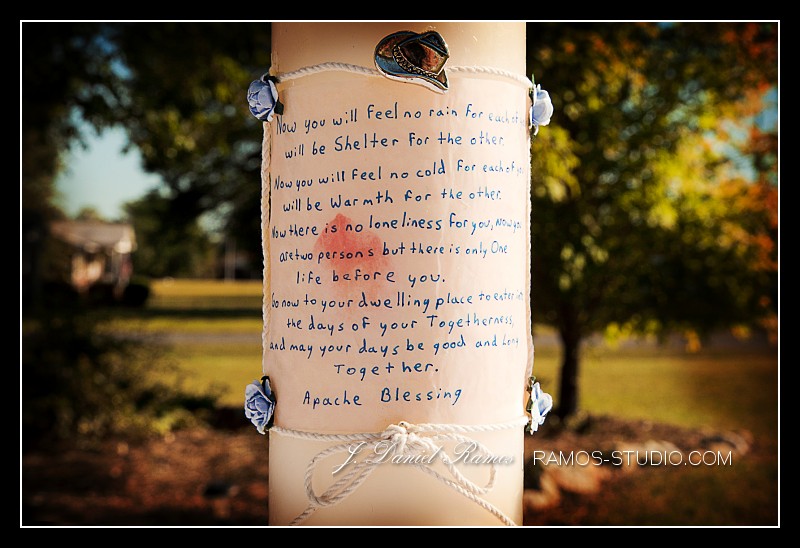 Now you will feel no rain For each of
will be Shelter For the other.
Now you will feel no cold For each of
will be Warmth for the other.
Now there is no loneliness for you, Now you
are two persons but there is only One
life before you.
Go now to your dwelling place to enter into
the days of your Togetherness,
and may your days be good and Long
Together.
Apache Blessing
J. Daniel Ramos | RAMOS-STUDIO.COM